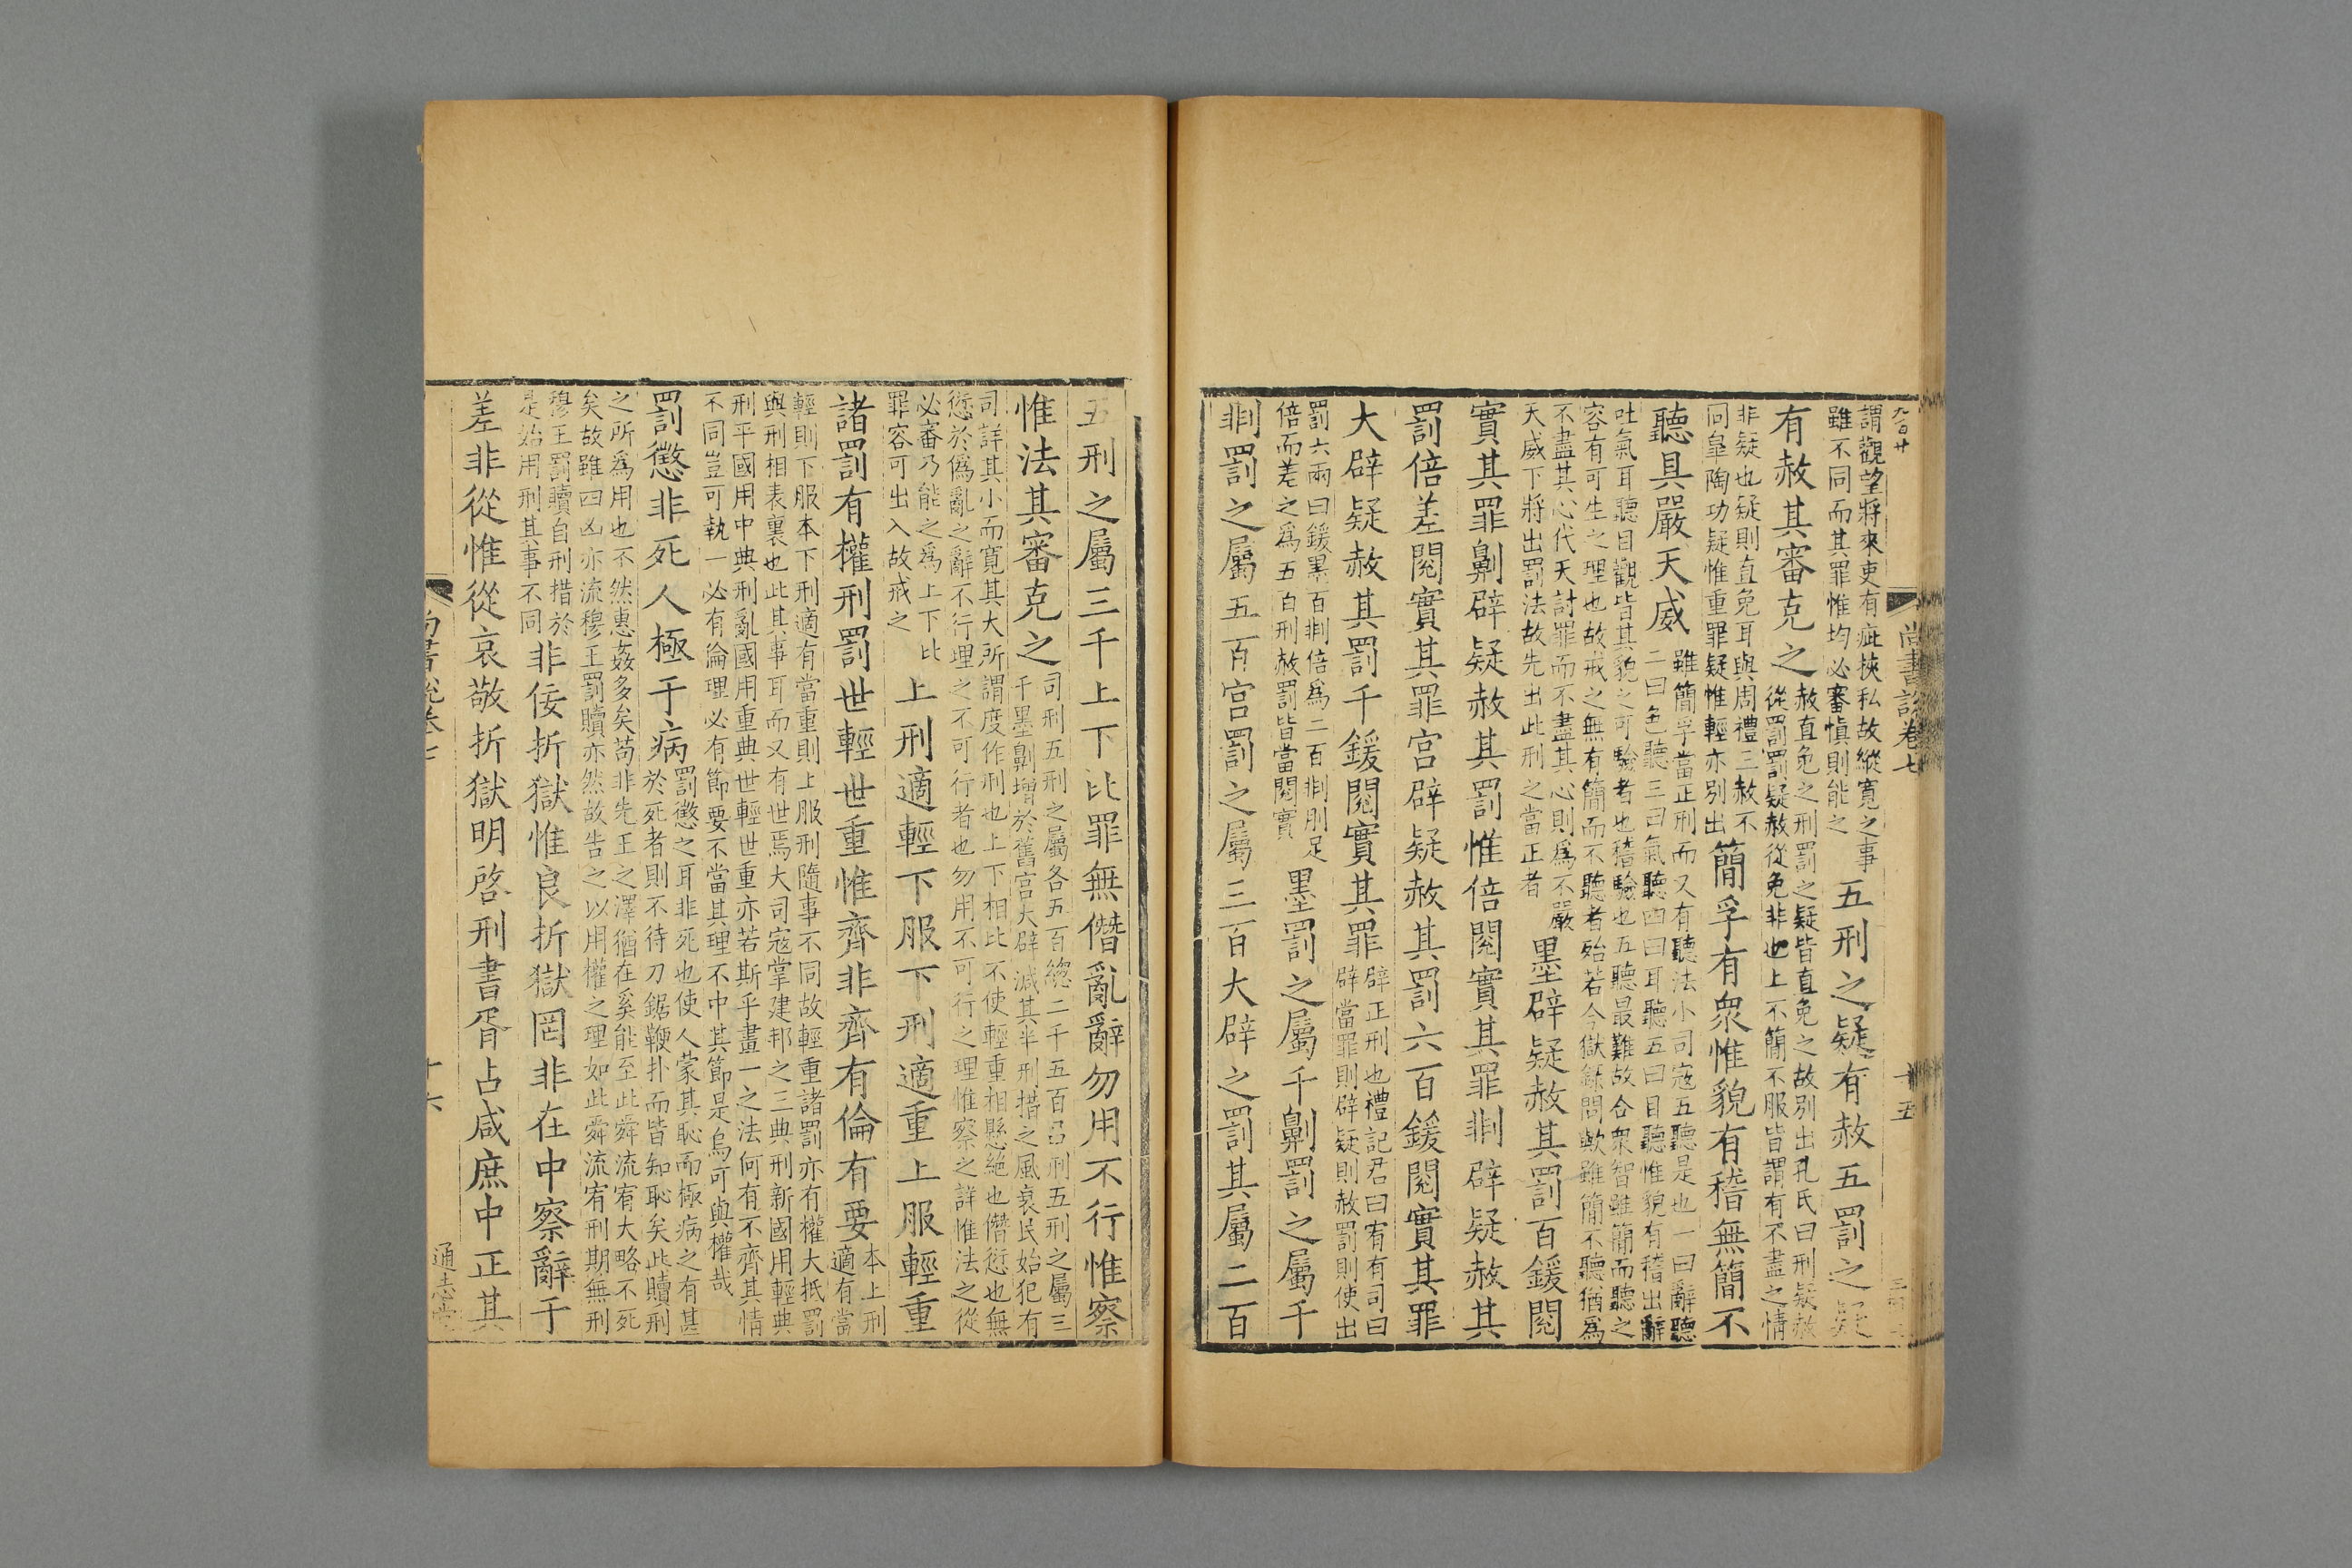 九百廿
尚書說卷七
十五
謂觀望將來吏有疵挾私故縱寬之事
雖不同而其罪惟均必審愼則能之
五刑之疑有赦五罰之疑
有赦其審克之
赦直免之刑罰之疑皆直免之故別出孔氏曰刑疑赦
從罰罰疑赦從免非也上不簡不服皆謂有不盡之情
非疑也疑則直免耳與周禮三赦不
同臯陶功疑惟重罪疑惟輕亦別出
簡孚有衆惟貌有稽無簡不
聽具嚴天威
雖簡孚當正刑而又有聽法小司寇五聽是也一曰辭聽
二曰色聽三曰氣聽四曰耳聽五曰目聽惟貌有稽出辭
吐氣耳聽目觀皆其貌之可驗者也稽驗也五聽最難故合衆智雖簡而聽之
容有可生之理也故戒之無有簡而不聽者殆若今獄錄問歟雖簡不聽猶為
不盡其心代天討罪而不盡其心則爲不嚴
天威下將出罰法故先出此刑之當正者
墨辟疑赦其罰百鍰閱
實其罪劓辟疑赦其罰惟倍閱實其罪剕辟疑赦其
罰倍差閱實其罪宮辟疑赦其罰六百鍰閱實其罪
大辟疑赦其罰千鍰閱實其罪
辟正刑也禮記君曰宥有司曰
辟當罪則辟疑則赦罰則使出
罰六兩曰鍰墨百剕倍爲二百剕刖足
倍而差之爲五百刑赦罰皆當閱實
墨罰之屬千劓罰之屬千
剕罰之屬五百宮罰之屬三百大辟之罰其屬二百
五刑之屬三千上下比罪無僭亂辭勿用不行惟察
惟法其審克之
司刑五刑之屬各五百總二千五百呂刑五刑之屬三
千墨劓增於舊宮大辟減其半刑措之風衰民始犯有
司詳其小而寬其大所謂度作刑也上下相比不使輕重相懸絕也僭愆也無
愆於僞亂之辭不行理之不可行者也勿用不可行之理惟察之詳惟法之從
必審乃能之爲上下比
罪容可出入故戒之
上刑適輕下服下刑適重上服輕重
諸罰有權刑罰世輕世重惟齊非齊有倫有要
本上刑
適有當
輕則下服本下刑適有當重則上服刑隨事不同故輕重諸罰亦有權大抵罰
與刑相表裏也此其事耳而又有世焉大司寇掌建邦之三典刑新國用輕典
刑平國用中典刑亂國用重典世輕世重亦若斯乎畫一之法何有不齊其情
不同豈可執一必有淪理必有節要不當其理不中其節是烏可與權哉
罰懲非死人極于病
罰懲之耳非死也使人蒙其恥而極病之有甚
於死者則不待刀鋸鞭扑而皆知恥矣此贖刑
之所爲用也不然惠姦多矣苟非先王之澤猶在奚能至此舜流宥大略不死
矣故雖四凶亦流穆王罰贖亦然故告之以用權之理如此舜流宥刑期無刑
穆王罰贖自刑措於
是始用刑其事不同
非佞折獄惟良折獄罔非在中察辭于
差非從惟從哀敬折獄明啓刑書胥占咸庶中正其
尚書說卷七
十六
通志堂